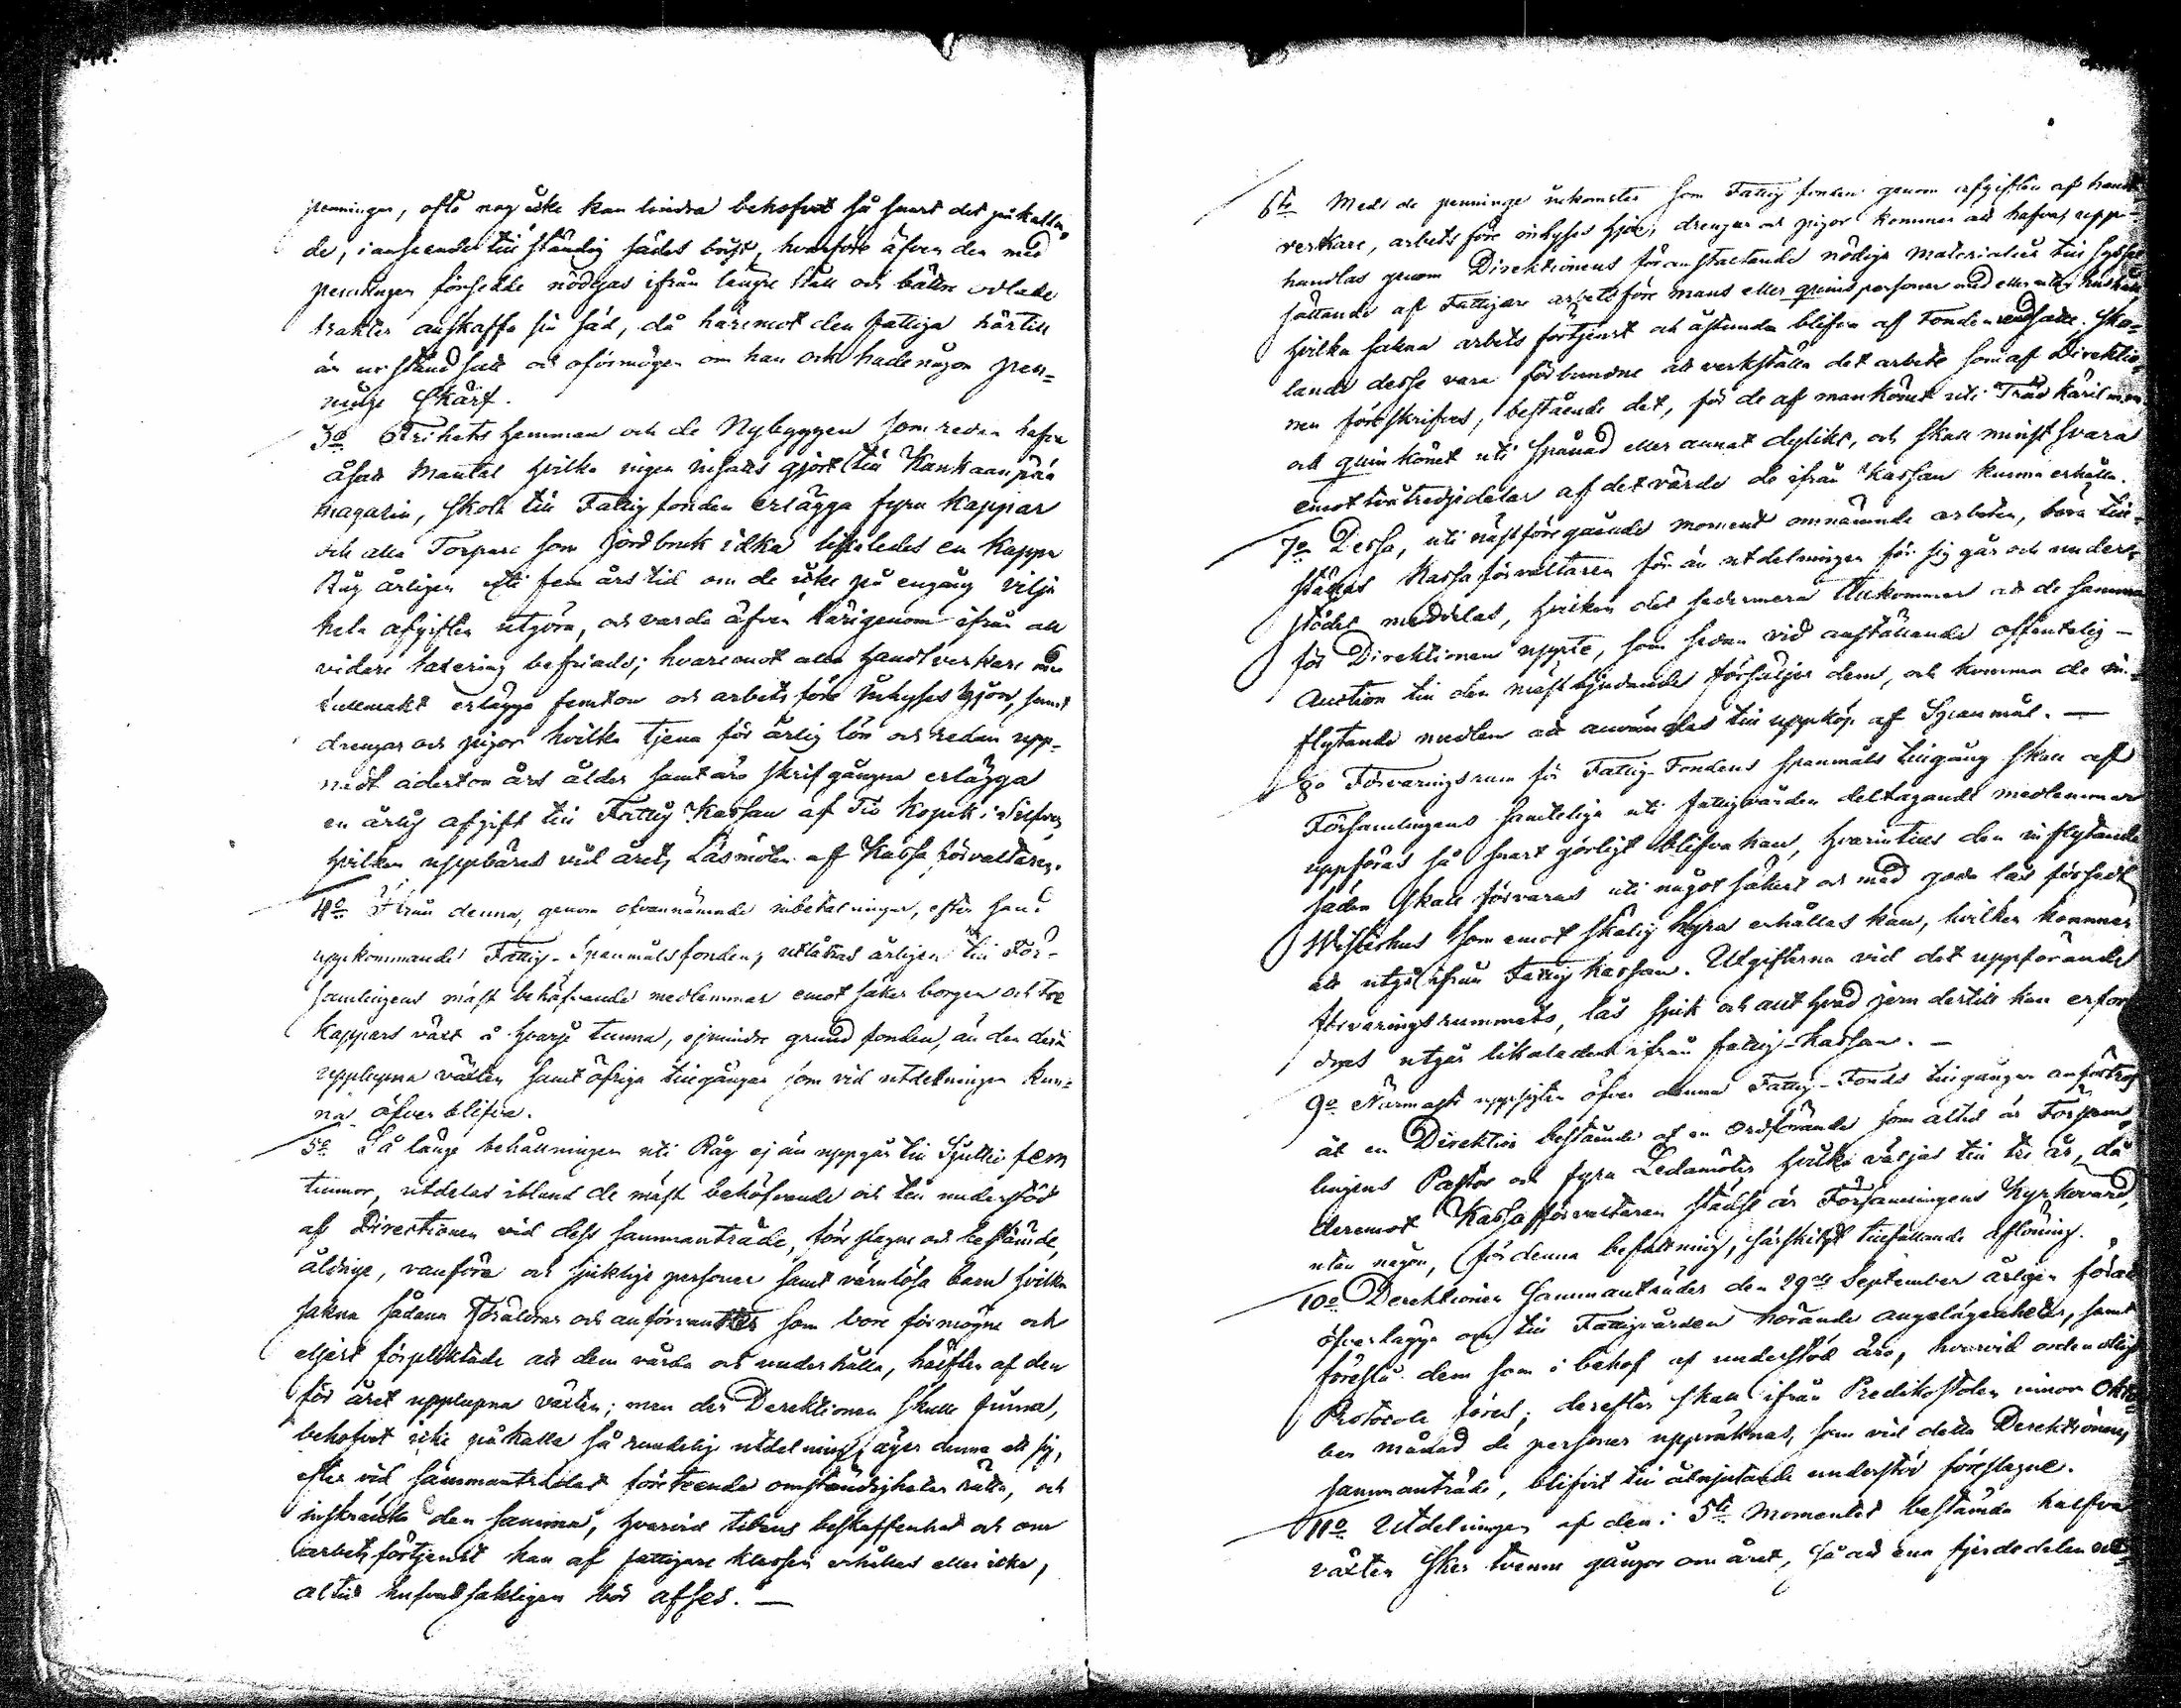 penningar, ofta nog icke kan lindra behofvet så snart det påkallas
de, i anseende till ständig sädes brist, hvarföre äfven den med
penningar försedde nödgas ifrån längre håll och bättre odlade
trakter anskaffa sin säd, då häremot den fattiga härtill
är urståndsatt och oförmögen om han ock hade någon pen-
ninge skärf.
3o Frihets hemman och de Nybyggen som redan hafva
åsatt Mantal hvilka ingen insats gjort till Kankaanpää
magasin, skola till Fattig fonden erlägga fyra kappar
och alla Torpare som jordbruk idka likaledes en kappa
Råg årligen uti fem års tid om de icke på engång vilja
hela afgiften utgöra, och varda äfven härigenom ifrån all
vidare taxering befriade; hvaremot alla Handtverkare
erlägga femton och arbetsföre Inhyses hjon, samt
drengar och pigor hvilka tjena för årlig lön och redan upp-
nått aderton års ålder samt äro skriftgångna erlägga
en årlig afgift till Fattig Kassan af Tio kopek i Silfver,
hvilken uppbäres vid årets Läsmöten af Kassa förvaltaren.
4o Ifrån denna, genom ofvannämnde inbetalningar, efter hand
uppkommande Fattig-Spanmåls fonden, utlånas årligen till För-
samlingens mäst behöfvande medlemmar emot säker borgen och tre
kappars växt å hvarje tunna, ej mindre grund fonden, än den derå
upplupna växten samt öfriga tillgångar som vid utdelningen kun-
na öfverblifva.
5o Så länge behållningen uti Råg ej än uppgår till Sjuttio fem
tunnor, utdelas ibland de mäst behöfvande och till understöd
af Directionen vid dess sammanträde, före slagne och bestämde,
åldrige, vanföre och sjuklige personer samt värnlösa barn hvilka
sakna sådana Föräldrar och anförvanter som vore förmögne och
eljest förpliktade att dem vårda och underhålla, hälften af den
för året upplupna växten; men der Derektionen skulle finna,
behofvet icke påkalla så rundelig utdelning, äger denna att sig,
efter vid sammanträdet företeende omständigheter rätta, och
inskränka den samma, hvarvid tidens beskaffenhet och om
arbetsförtjenst kan af fattigare klassen erhållas eller icke,
altid hufvudsakligen bör afses. —
6te Med de penninge inkomster som Fattig fonden genom afgiften af handt
verkare, arbetsföre inhyses hjon, drengar och pigor kommer att hafva, upp-
handlas genom Direktionens föranstaltande nödiga materialier till syssel
sättande af Fattigare arbetsföre mans eller qvins personer med eller utan hushåll
hvilka sakna arbets förtjenst och åstunda blifva af Fonden undsatte. Sko-
lande desse vara förbundne att verkställa det arbete som af Direktio-
nen föreskrifves, bestående det, för de af mankönet uti Träd käril men
och qvinkönet uti spånad eller annat dylikt, och skall minst svara
emot två tredjedelar af det värde de ifrån Kassan kunna erhålla.
7o Dessa, uti nästföregående moment omnämnde arbeten, böra till-
ställas Kassaförvaltaren för än utdelningen för sig går och under-
stödet meddelas, hvilken det sedermera tillkommer att de samma
för Direktionen uppte, som sedan vid anställande offentelig —
Auction till den mästbjudande försäljer dem, och komma de in-
flytande medlen att användas till uppköp af Spanmål. —
8o Förvaringsrum för Fattig-Fondens spanmåls tillgång skall af
Församlingens samtelige uti fattigvården deltagande medlemmar
uppföras så snart görligt blifva kan, hvarintill den inflytande
säden skall förvaras uti något säkert och med goda lås försedt
Wisthus som emot skälig hyra erhållas kan, hvilken kommer
att utgå ifrån Fattig kassan. Utgifterna vid det uppförande
förvaringsrummets, lås spik och allt hvad jern dertill kan erfor
dras utgår likaledes ifrån fattig-kassan. —
9o Närmaste uppsigten öfver denna Fattig-Fonds tillgångar anförtros
åt en Direktion bestående af en Ordförande som altid är Försam-
lingens Pastor och fyra Ledamöter hvilka väljas till tre år, då
deremot Kassaförvaltaren städse är Församlingens Kyrkovärd,
utan någon, för denna befattning, särskildt tillfallande aflöning.
10o Derektionen Sammanträder den 29de September årligen för att
öfverlägga om till Fattigvården hörande angelägenheter, samt
föreslå dem som i behof af understöd äro, hvarvid ordentligt
Protocoll föres; derefter skall ifrån Predikostolen innom Okto-
ber månad de personer uppräknas, som vid detta Derektionens
sammanträde, blifvit till åtnjutande understöd föreslagne.
11o Utdelningen af den i 5te Momentet bestämda halfva
växten sker tvenne gångor om året, så att ena fjerdedelen ut-